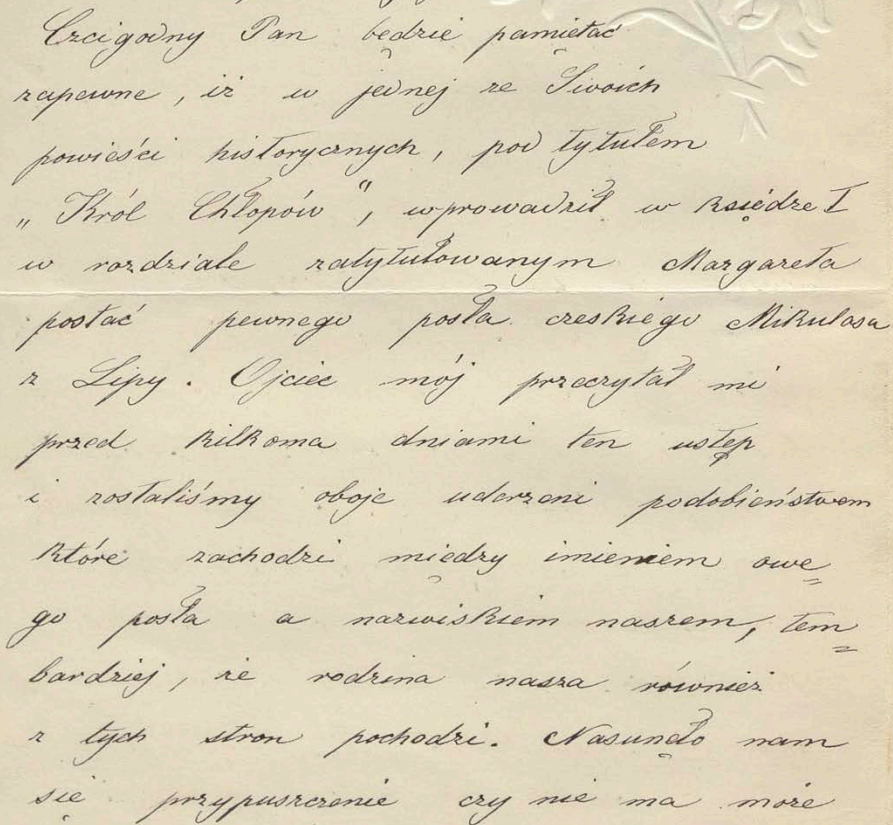 Czcigodny Pan będzie pamiętać
zapewne, iż w jednej ze Swoich
powieści historycznych, pod tytułem
„Król Chłopów“, wprowadził w księdze I
w rozdziale zatytułowanym Margareta
postać pewnego posła czeskiego Mikulasa
z Lipy. Ojciec mój przeczytał mi
przed kilkoma dniami ten ustęp
i zostaliśmy oboje uderzeni podobieństwem
które zachodzi między imieniem owe=
go posła a nazwiskiem naszem, tem=
bardziej, że rodzina nasza również
z tych stron pochodzi. Nasunęło nam
się przypuszczenie czy nie ma może